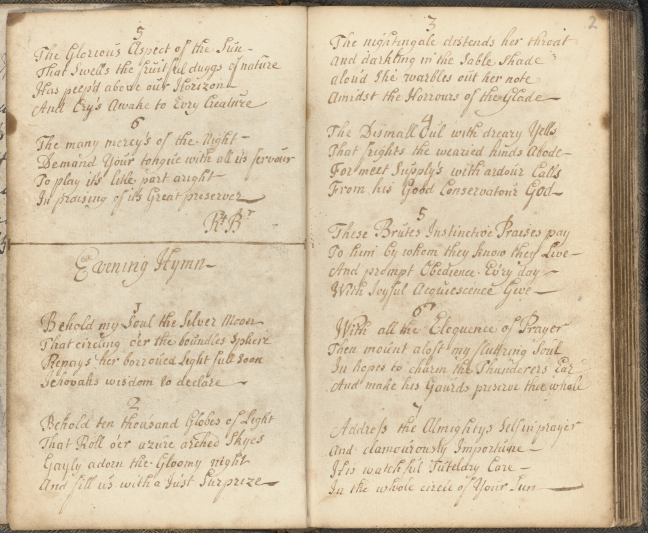 5
The Glorious Aspect of the Sun
That Swells the fruitful duggs of nature
Has peep'd above our Horizon
And Cry's Awake to Evry Creature
6
The many mercy's of the Night
Demand Your tongue with all its fervour
To play its like part aright
In praising of its Great preserver
Evening Hymn
1
Behold my Soul the Silver Moon
That circling o'er the boundles Sphere
Repays her borrowed light full soon
Jehovahs wisdom to declare
2
Behold ten thousand Globes of Light
That Roll o'er azure arched Skyes
Gayly adorn the Gloomy night
And fill us with a Just Surprize
2
3
The nightingale distends her throat
And darkling in the Sable Shade
aloud She warbles out her note
Amidst the Horrours of the Glade
4
The Dismall Oul with dreary Yells
That frights the wearied hinds Abode
For meet Supply's with ardour Calls
From his Good Conservatour God
5
These Brutes Instinctive Praises pay
To him by whom they know they Live
And prompt Obedience Evry day
With Joyful Acquiescence Give
6
With all the Eloquence of Prayer
Then mount aloft my fluttring Soul
In hopes to charm the Thunderers Ear
And make his Gourds preserve thee whole
7
Address the Almightys Self in prayer
And clamourously Importune
His watchful Tutelary Care
In the whole circle of Your Sun